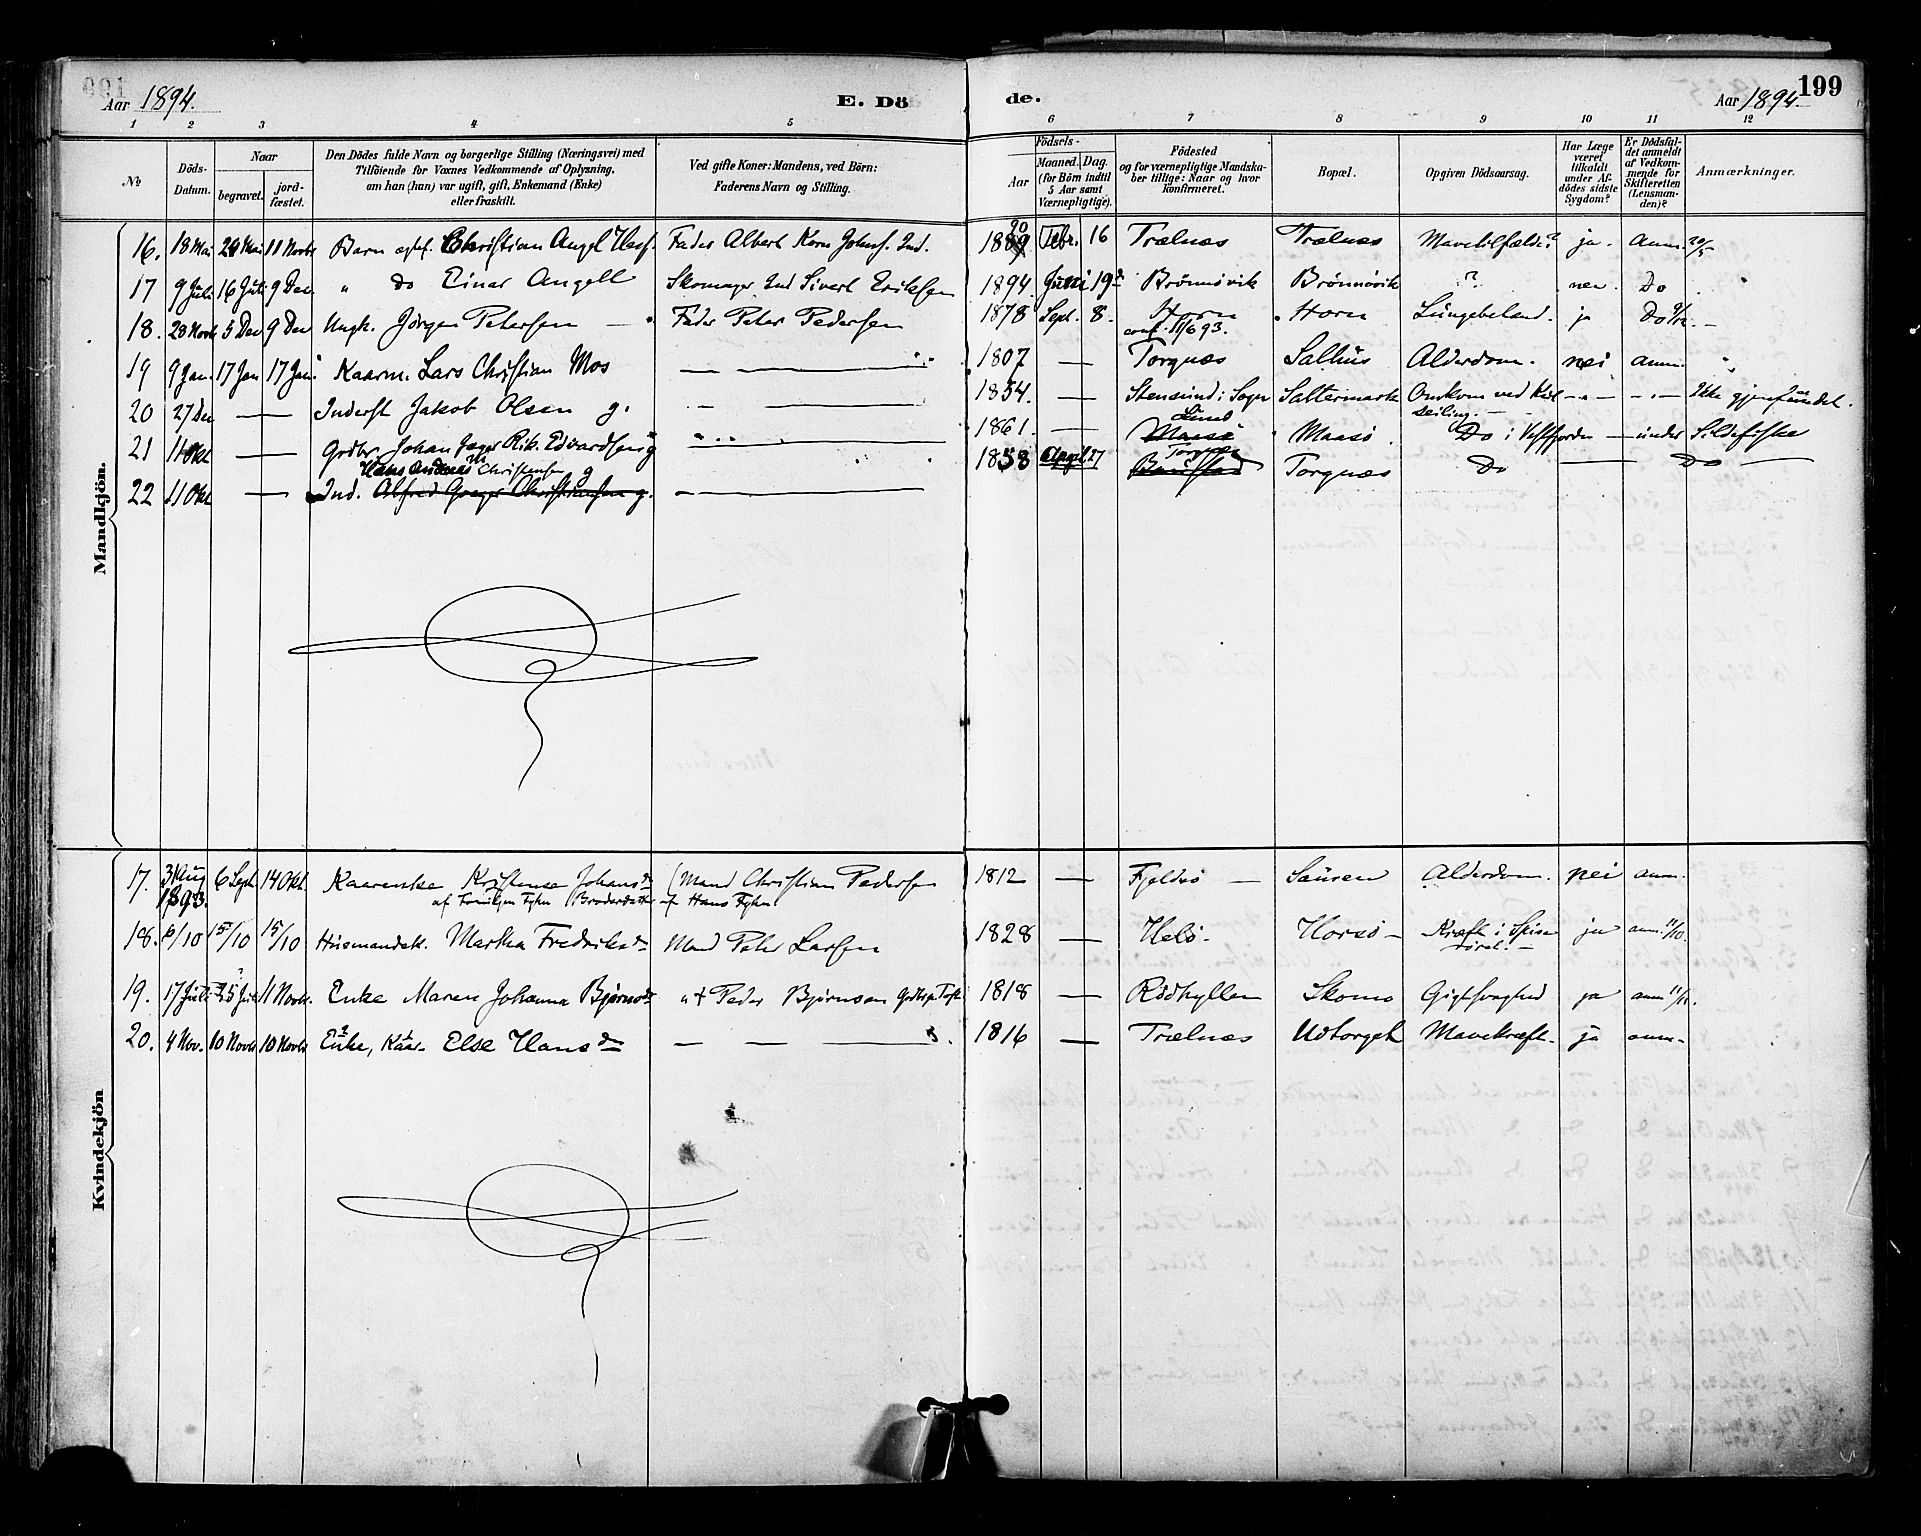 Aar 1894. E. Dö de. Aar 1894. 199
1 2 3 4 5 6 7 8 9 10 11 12
No
Döds-Datum.
Naar
begravet.
jord-fæstet.
Den Dödes fulde Navn og borgerlige Stilling (Næringsvei) med
Tilföiende for Voxnes Vedkommende af Oplysning,
om han (hun) var ugift, gift, Enkemand (Enke)
eller fraskilt.
Ved gifte Koner: Mandens, ved Börn:
Faderens Navn og Stilling.
Födsels-
Aar
Maaned. Dag.
(for Börn indtil
5 Aar samt
Værnepligtige).
Födested
og for værnepligtige Mandska-
ber tillige: Naar og hvor
konfirmeret.
Bopæl.
Opgiven Dödsaarsag.
Har Læge
været
tilkaldt
under Af-
dödes sidste
Sygdom?
Er Dödsfal-
det anmeldt
af Vedkom-
mende for
Skifteretten
(Lensman-
den)?
Anmærkninger.
Mandkjön.
16. 18 Mai 24 Mai 11 Novbr Barn Christian Angel Fader Albert Korn Johns. Ind. 1889 90 Febr. 16 Trælnæs Trælnæs Mavetilfælde? ja. anm. 20/5
17 9 Juli 16 Juli 9 Dec. " do Einar Angell Skomager Ind Sivert Eriksen 1894 Juni 19 Brönnövik Brönnövik ? nei Do "
18. 28 Novb 5 Dec 9 Dec Ungk. Jörgen Petersen Fader Peter Pedersen 1878 Sept. 8. Horn Horn Lungebetænd. ja Do
conf. 11/6 93.
19 9 Jan. 17 Jan 17 Jan. Kaarm. Lars Christian Mos — 1807 — Torgnæs Salhus Alderdom. nei anm. "
20 27 Dec — Inderst Jakob Olsen g. — 1854. — Stensund i Sogn Saltermark Omkom ved Kul- - " - - " - Ikke gjenfundet.
seiling.
21 11 Okt — Grdbr. Johan Jæger Rik. Edvardsen g — 1861. — Maasö Maasö. Do i Vestfjorden — under Sildefiske
Hans Andreas Christensen g
22 11 Okt — Ind. Alfred Christiansen g. — 1858 April 27 Torgnæs Torgnæs Do — Do —
Kvindekjön
17. 31 Aug 1893. 6 Sept 14 Okt. Kaarenke Kristense Johansd. (Mand Christian Pedersen 1812 — Fjeldsö — Sauren Alderdom. nei anm.
af Familjen Fyhn Broderdatter af Hans Fyhn
18. 6/10 15/10 15/10 Husmandsk. Martha Fredriksd. Mand Peter Larsen 1828 — Helö. Horsö — Kræft i Spise- ja anm. 11/10.
röret. —
19. 17 Juli 25 Juli 11 Novbr. Enke Maren Johanna Björnsd. " † Peder Björnsen 1818 — Rödhyllen Skomo Gigtsvaghed ja anm 11/11.
20. 4 Nov. 10 Novbr 10 Novbr Enke, Kaar. Else Hansd. — 1816 — Trælnæs Udtorget Mavekræft. ja anm.